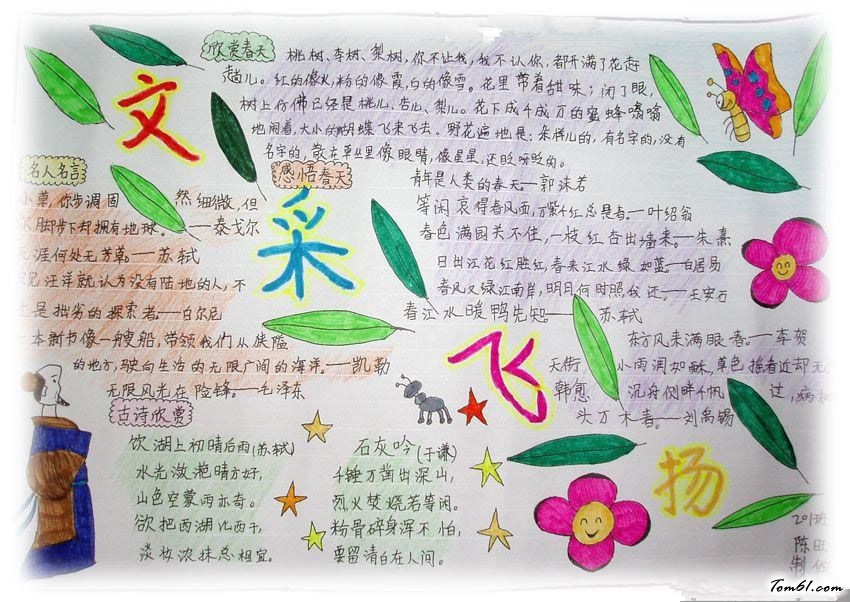 文采飞扬
欣赏春天
桃树、李树、梨树,你不让我,我不认你,都开满了花赶
趟儿。红的像火,粉的像霞,白的像雪。花里带着甜味;闭了眼,
树上仿佛已经是桃儿、杏儿、梨儿。花下成千成万的蜜蜂嗡嗡
地闹着,大小的蝴蝶飞来飞去。野花遍地是:杂样儿的,有名字的,没有
名字的,散在草丛里像眼睛,像星星,还眨呀眨的。
名人名言
小草,你步调固然细微,但
脚步下却拥有地球。——泰戈尔
天涯何处无芳草。——苏轼
见汪洋就认为没有陆地的人,不
是拙劣的探索者——白尔尼
一本新书像一艘船,带领我们从狭隘
的地方,驶向生活的无限广阔的海洋。——凯勒
无限风光在险锋。——毛泽东
感悟春天
青年是人类的春天——郭沫若
等闲哀得春风面,万紫千红总是春。——叶绍翁
春色满园关不住,一枝红杏出墙来。——朱熹
日出江花红胜红,春来江水绿如蓝。——白居易
春风又绿江南岸,明月何时照我还。——王安石
春江水暖鸭先知。——苏轼
东方风来满眼春。——李贺
天街小雨润如酥,草色遥看近却无
韩愈 沉舟侧畔千帆过,病树
头万木春。——刘禹锡
古诗欣赏
饮湖上初晴后雨(苏轼)
水光潋滟晴方好,
山色空蒙雨亦奇。
欲把西湖比西子,
淡妆浓抹总相宜。
石灰吟(于谦)
千锤万凿出深山,
烈火焚烧若等闲。
粉骨碎身浑不怕,
要留清白在人间。
201班
陈旺
制作
Tom61.com